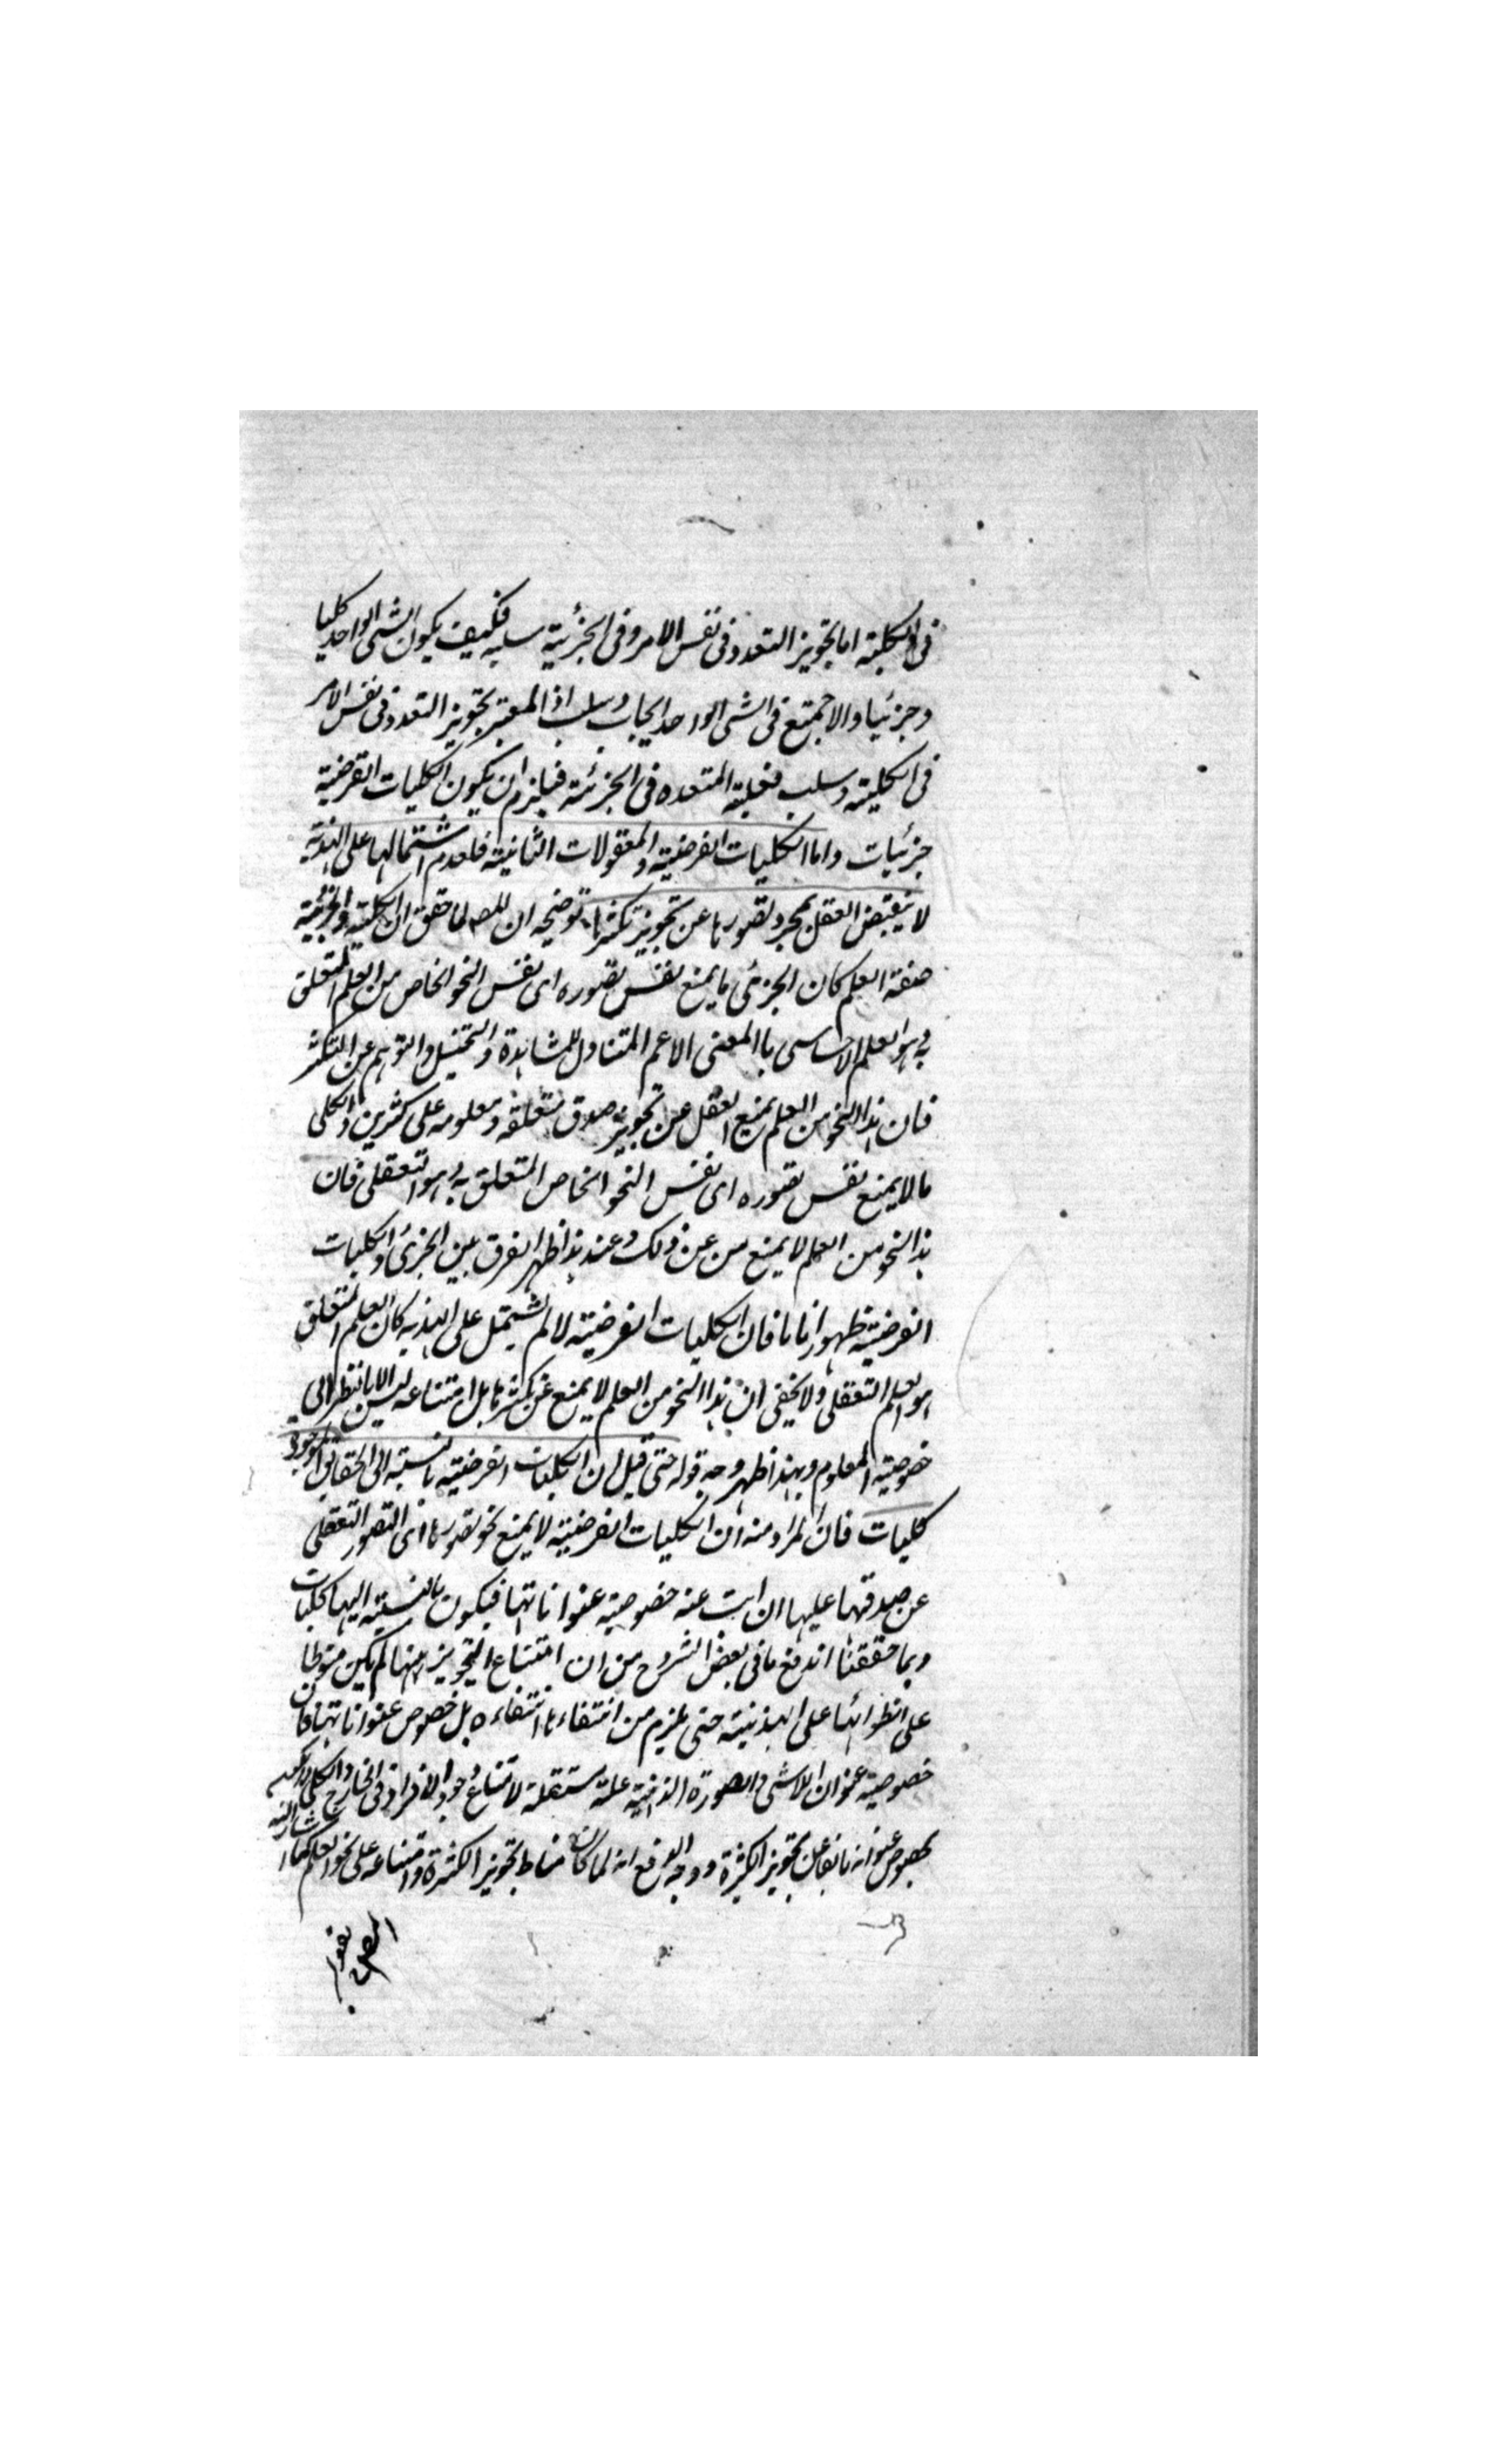 فى الكلية اما تجويز التعدد فى نفس الامر وفى الجزئية سلبه فكيف يكون الشى الواحد كليا
وجزئيا والا جمتع فى الشى الواحد ايجاب وسلب اذ المعتبر تجويز التعدد فى نفس الامر
فى الكلية وسلب فعلية المتعدده فى الجزئية فيلزم ان يكون الكليات الفرضية
جزئيات واما الكليات الفرضية والمعقولات الثانية فلعدم اشتمالها على الهذية
لا ينقبض العقل بمجرد تصورها عن تجويز تكثرها توضيحه ان المصـ لما حقق ان الكلية والجزئية
صفة العلم كان الجزئى ما يمنع نفس تصوره اى نفس النحو الخاص من العلم المتعلق
به وهو العلم الاحساسى باالمعنى الاعم المتناول للمشاهدة والتخيل والتوهم عن التكثر
فان هذا النحو من العلم يمنع العقل عن تجويز صدق متعلقه ومعلومه على كثيرين والكلى
ما لا يمنع نفس تصوره اى نفس النحو الخاص المتعلق به وهو التعقلى فان
هذا النحو من العلم لا يمنع من عن ذلك وعند هذا ظهر الفرق بين الجزئى والكليات
الفرضية ظهورا تاما فان الكليات الفرضية لا لم تشتمل على الهذيه كان العلم المتعلق
هو العلم التعقلى ولا يخفى ان هذا النحو من العلم لا يمنع عن تكثرها بل امتناعه ليس الا بالنظر الى
خصوصية المعلوم وبهذا ظهر وجه قوله حتى قيل ان الكليات الفرضية بالنسبة الى الحقائق الموجودة
كليات فان المراد منه ان الكليات الفرضية لا يمنع نحو تصورها اى التصور التعقلى
عن صدقها عليها ان ابت عنه خصوصية عنواناتها فيكون بالنسبة اليها كليات
وبما حققنا اندفع ما فى بعض الشروح من ان امتناع التجويز منها لم يكن منوطا
على انطوائها على الهذية حتى يلزم من انتفاءها انتفاءه بل خصوص عنواناتها فان
خصوصية عنوان اللاشى والصورة الذهنية علة مستقلة لامتناع وجود الافراد فى الخارج والكلى
بخصوص عنوانه مانعا عن تجويز الكثرة ووجه الدفع انه لما كان مناط تجويز الكثرة وامتناعه على نحو العلم كما اشار اليه
المصـ بقوله